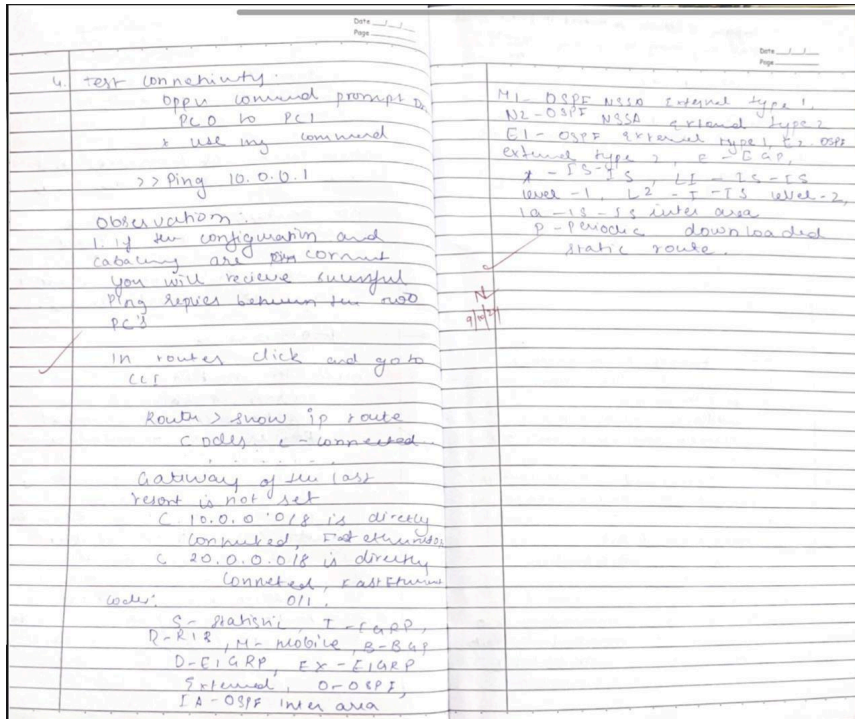 Date
Page
4. Test Connectivity:
Open command prompt
PC0 to PC1
* use ing command
>> Ping 10.0.0.1
Observation:
1. if the configuration and
cabaling are correct
you will recieve sucessful
Ping replies between the two
PC's
In router click and go to
CLI
Router > show ip route
Codes: C - connected
. . . . . . .
Gateway of the last
resort is not set
C 10.0.0.0/8 is directly
connected, Fast ethernet
C 20.0.0.0/8 is directly
Conneted, FastEthernet
0/1.
codes:
S - Statistic, I - IGRP,
R - RIP, M - mobile, B - BGP
D - EIGRP, EX - EIGRP
External, O - OSPF,
IA - OSPF inter area
Date
Page
N1 - OSPF NSSA External type 1,
N2 - OSPF NSSA external type 2
E1 - OSPF external type 1, E2 OSPF
external type 2, E - EGP,
i - IS-IS, L1 - IS-IS
level - 1, L2 - I - IS level - 2,
ia - IS - IS inter area
P - Periodic downloaded
static route.